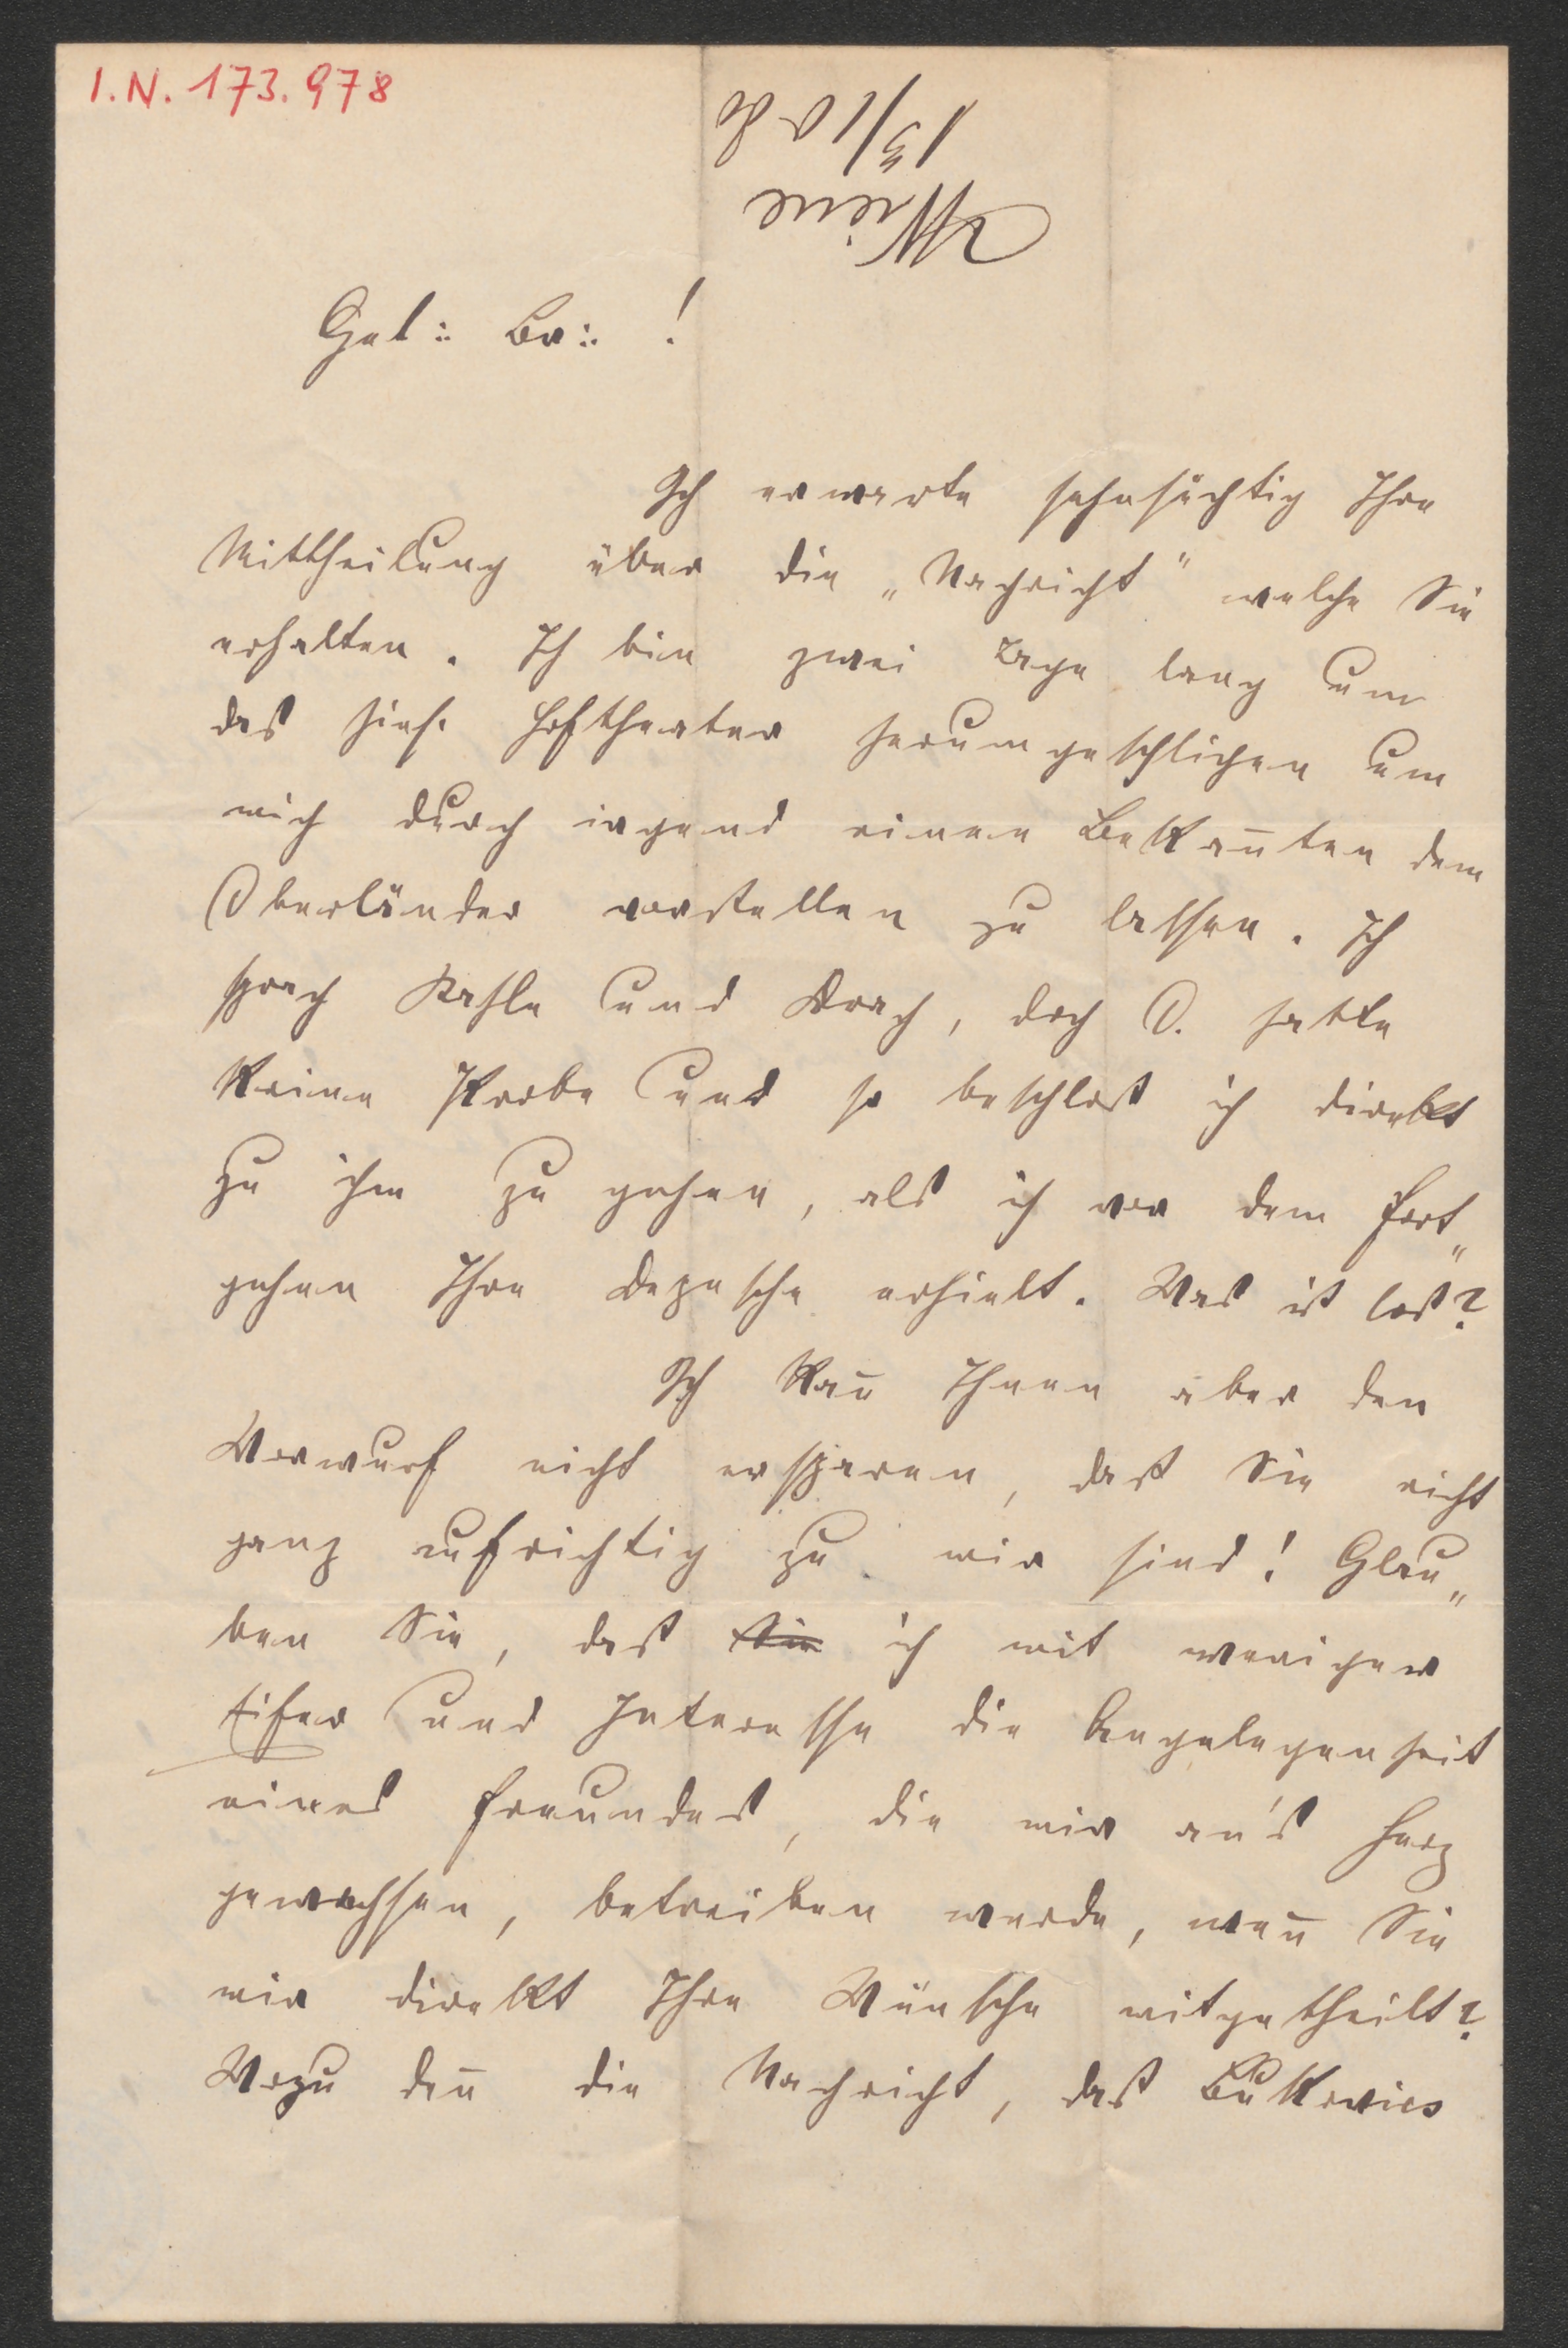 I.N. 173.978
Wiene
13/10 86
Gel ∴ Br ∴ !
Ich erwarte sehnsüchtig Ihre
Mittheilung über die „Nachricht" welche Sie
erhalten. Ich bin zwei Tage lang um
das hies. Hoftheater herumgeschlichen um
mich durch irgend einen Bekan̄ten dem
Oberländer vorstellen zu lassen. Ich
sprach Kahle und Drach, doch O. hatte
keine Probe und so beschloß ich direkt
zu ihm zu gehen, als ich vor dem Fort„
gehen Ihre Depesche erhielt. Was ist los?
Ich kan̄ Ihnen aber den
Vorwurf nicht ersparen, daß Sie nicht
ganz aufrichtig zu mir sind! Glau„
ben Sie, daß Sie ich mit weniger
Eifer und Interesse die Angelegenheit
eines Freundes, die mir an's Herz
gewachsen, betreiben werde, wen̄ Sie
mir direkt Ihre Wünsche mitgetheilt?
Wozu den̄ die Nachricht, daß Bukovics